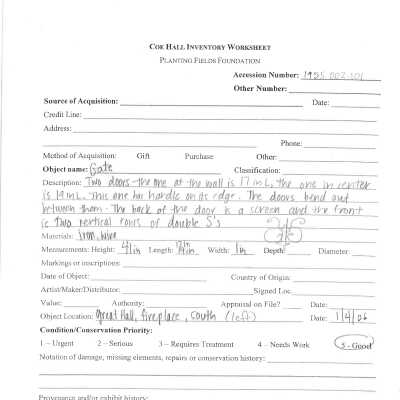 COE HALL INVENTORY WORKSHEET
PLANTING FIELDS FOUNDATION
Accession Number: 1985.002.101
Other Number:
Source of Acquisition: Date:
Credit Line:
Address:
Phone:
Method of Acquisition: Gift Purchase Other:
Object name: Gate Classification:
Description: Two doors - the one at the wall is 17 in L, the one in center
is 19 in L. This one has handle on its edge. The doors bend out
between them. The back of the door is a screen and the front
is two vertical rows of double S's
Materials: Iron, wire
Measurements: Height: 41in Length: Width: 1in Depth: Diameter:
Markings or inscriptions:
Date of Object: Country of Origin:
Artist/Maker/Distributor: Signed Loc.
Value: Authority: Appraisal on File? Date:
Object Location: Great Hall, fireplace, south (left) Date: 1/4/06
Condition/Conservation Priority:
1 – Urgent 2 – Serious 3 – Requires Treatment 4 – Needs Work 5 - Good
Notation of damage, missing elements, repairs or conservation history:
Provenance and/or exhibit history: